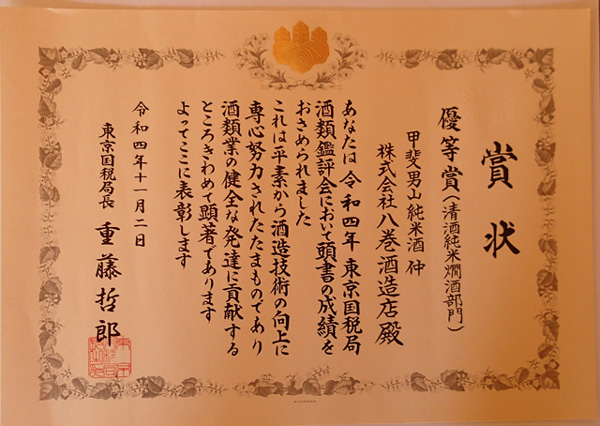 賞状
優等賞(清酒純米燗酒部門)
甲斐男山 純米酒 仲
株式会社八巻酒造店殿
あなたは令和四年 東京国税局
酒類鑑評会において頭書の成績を
おさめられました
これは平素から酒造技術の向上に
専心努力されたたまものであり
酒類業の健全な発達に貢献する
ところきわめて顕著であります
よってここに表彰します
令和四年十一月二日
東京国税局長 重藤哲郎